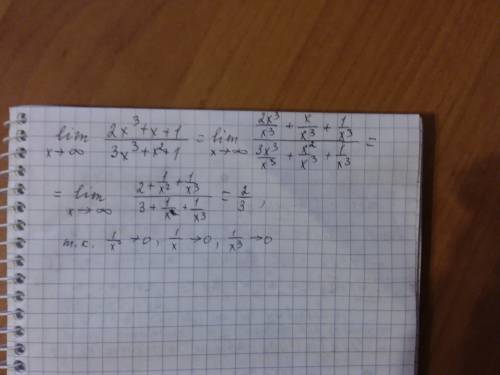 lim x→∞ (2x³+x+1)/(3x³+x²+1) = lim x→∞ (2x³/x³ + x/x³ + 1/x³)/(3x³/x³ + x²/x³ + 1/x³) =
= lim x→∞ (2+1/x²+1/x³)/(3+1/x+1/x³) = 2/3,
т.к. 1/x² →0, 1/x →0, 1/x³ →0